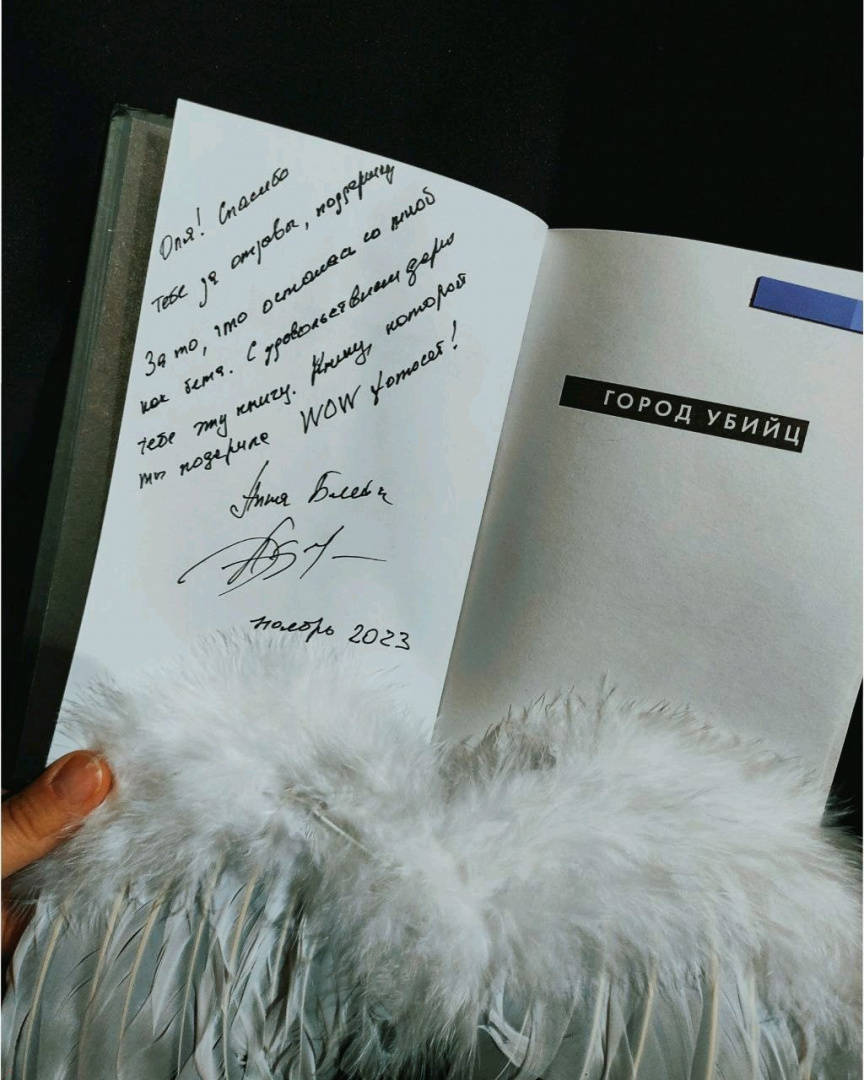 Оля! Спасибо
тебе за отзывы, поддержку
За то, что осталась со мной
как бета. С удовольствием дарю
тебе эту книгу. Книгу, которой
ты подарила WOW фотосет!
Анна Блейк
ноябрь 2023
ГОРОД УБИЙЦ